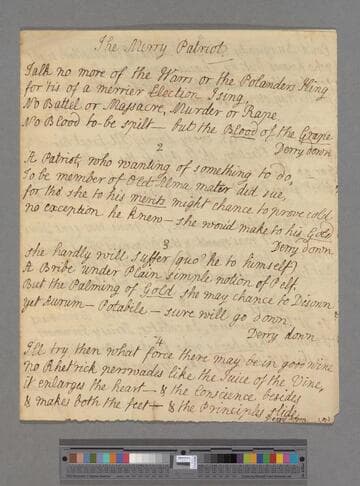 The Merry Patriot
Talk no more of the Warrs or the Polanders King
for tis of a merrier Election I sing,
No Battel or Massacre, Murder or Rape,
No Blood to be spilt — but the Blood of the Grape
Derry down
2
A Patriot, who wanting of something to do,
To be member of Old Alma mater did sue,
for tho' she to his merits might chance to prove cold
no exception he knew — she woud make to his Gold
Derry down
3
she hardly will suffer (quo' he to himself)
A Bribe under Plain simple notion of Pelf,
But the Palming of Gold she may chance to Disown
yet Aurum — Potabile — sure will go down
Derry down
4
I'll try then what force there may be in good wine
no Rhetrick perrwades like the Juice of the Vine,
it enlarges the heart — & the Conscience besides
& makes both the feet — & the Principles slide
Derry down